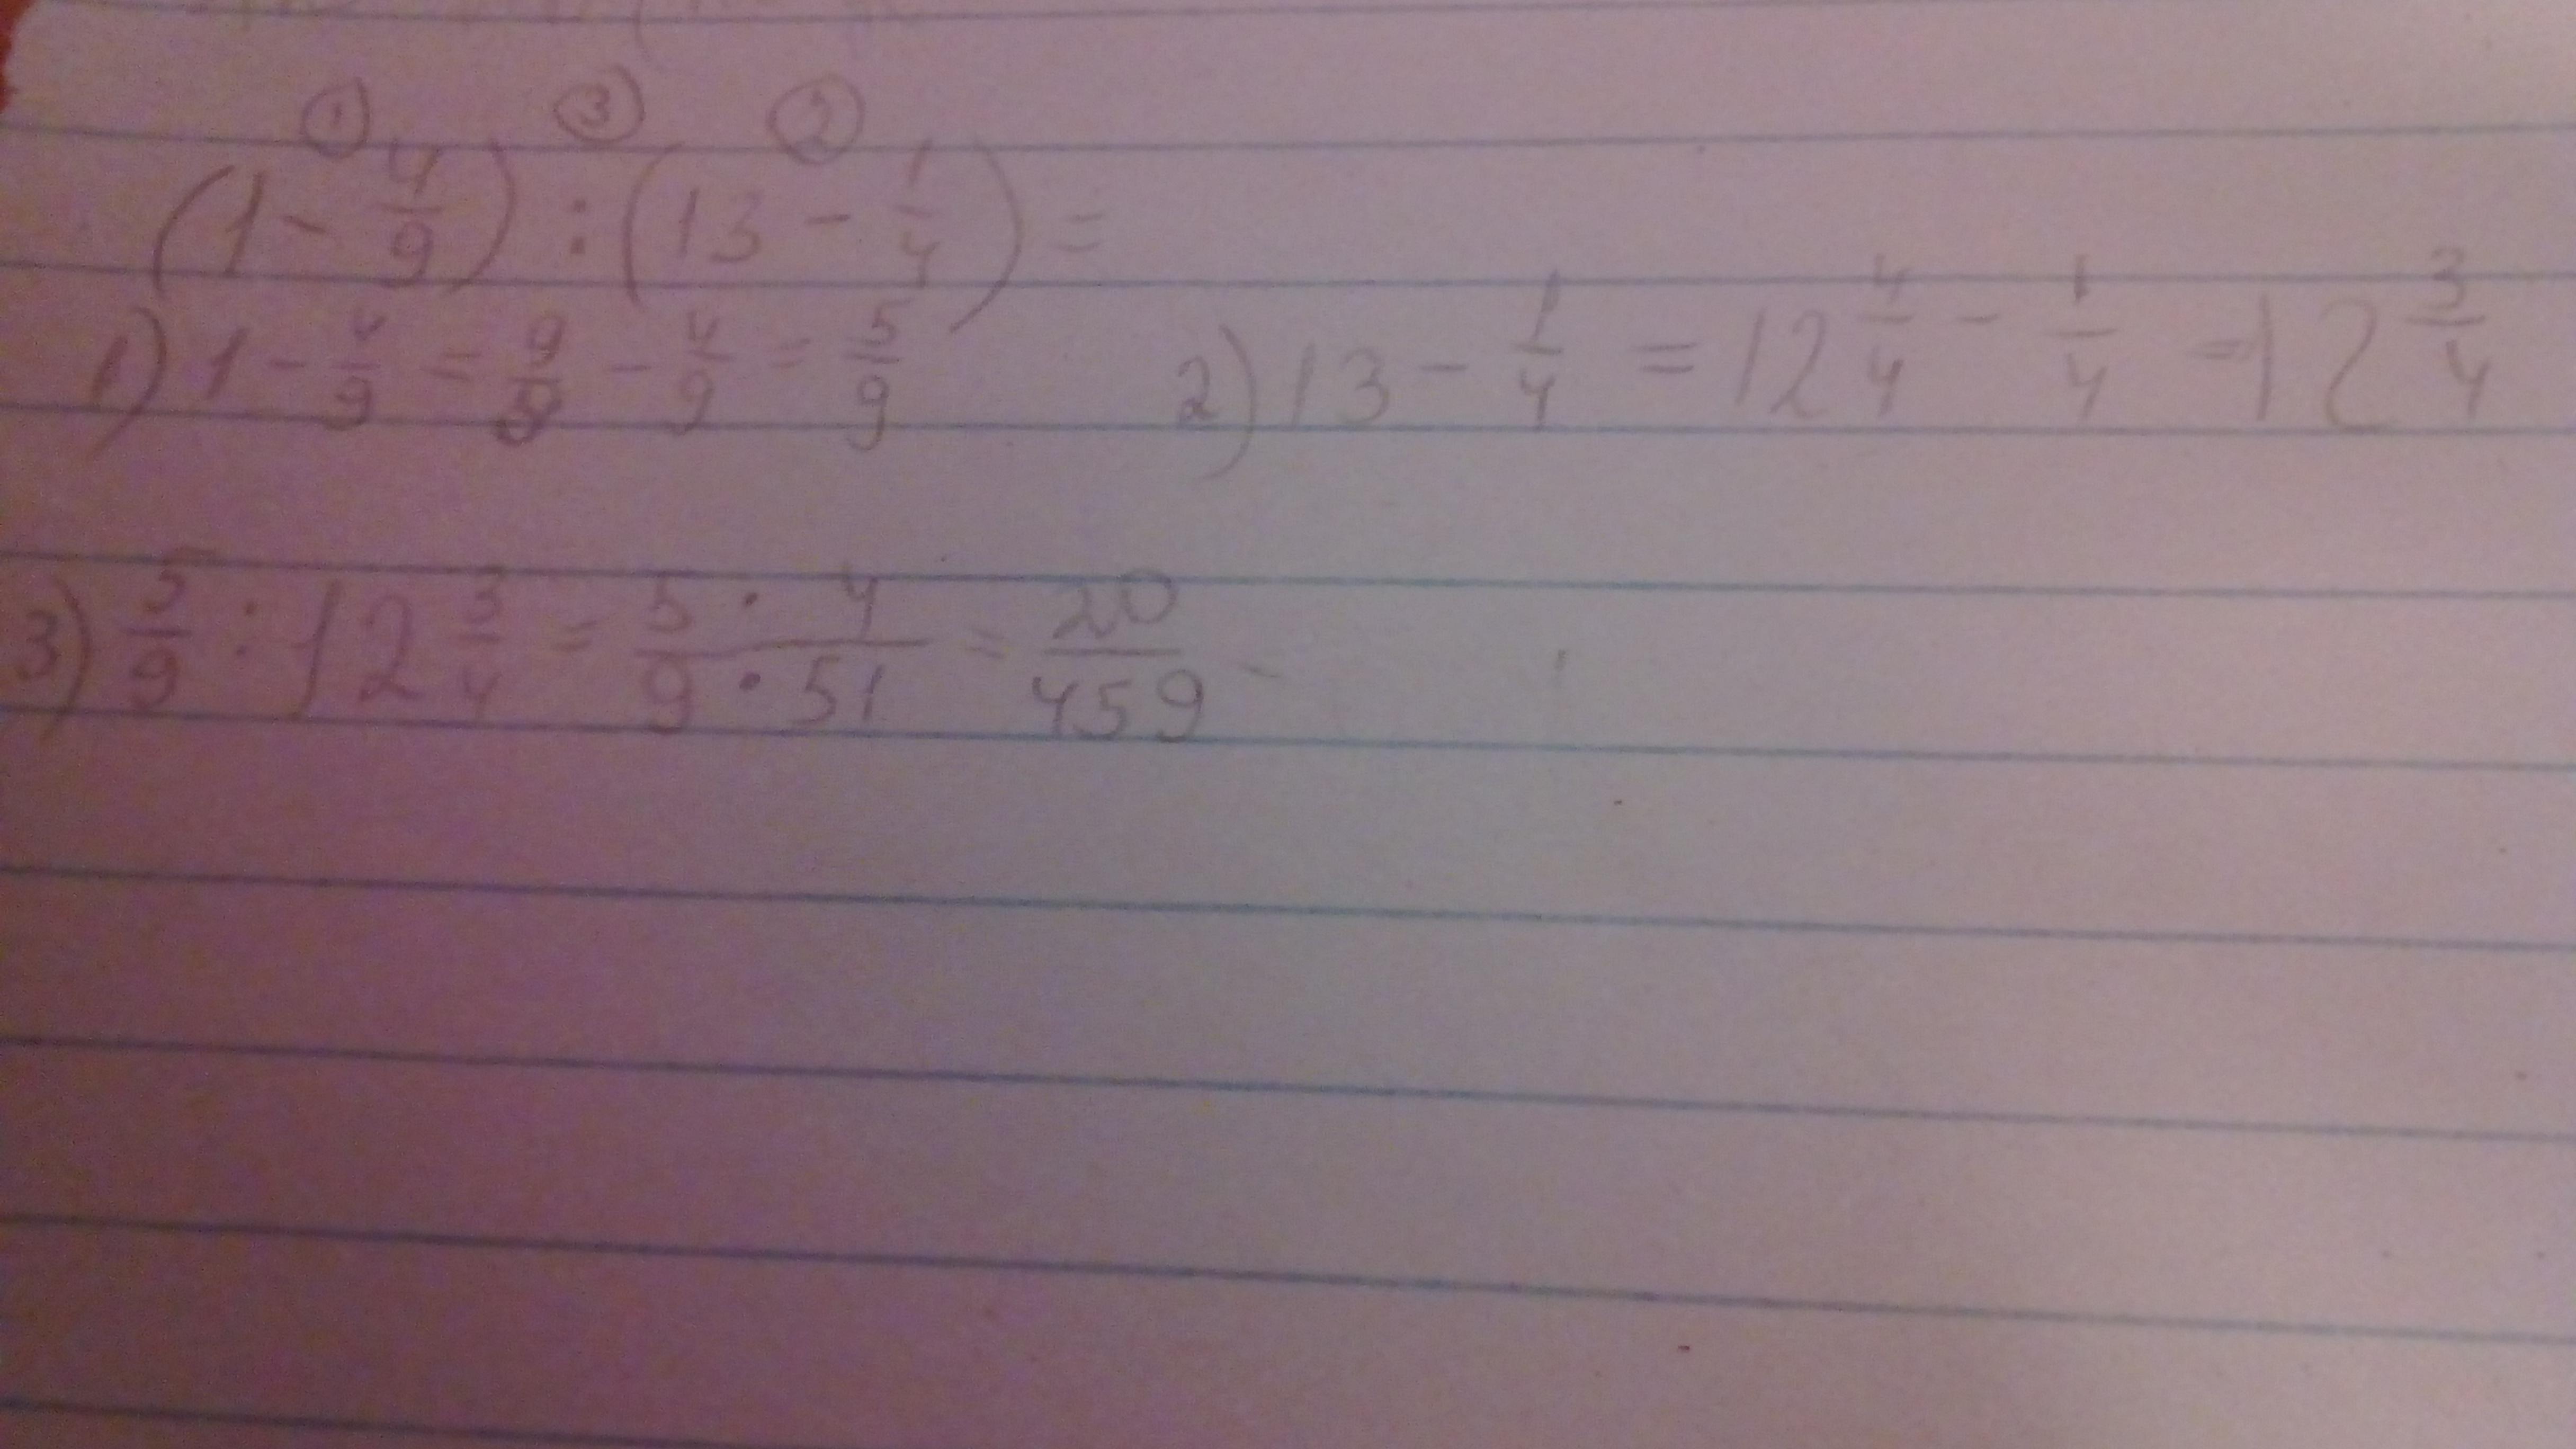 ① ③ ②
(1 - 4/9) : (13 - 1/4) =
1) 1 - 4/9 = 9/9 - 4/9 = 5/9 2) 13 - 1/4 = 12 4/4 - 1/4 = 12 3/4
3) 5/9 : 12 3/4 = 5 · 4 / 9 · 51 = 20/459